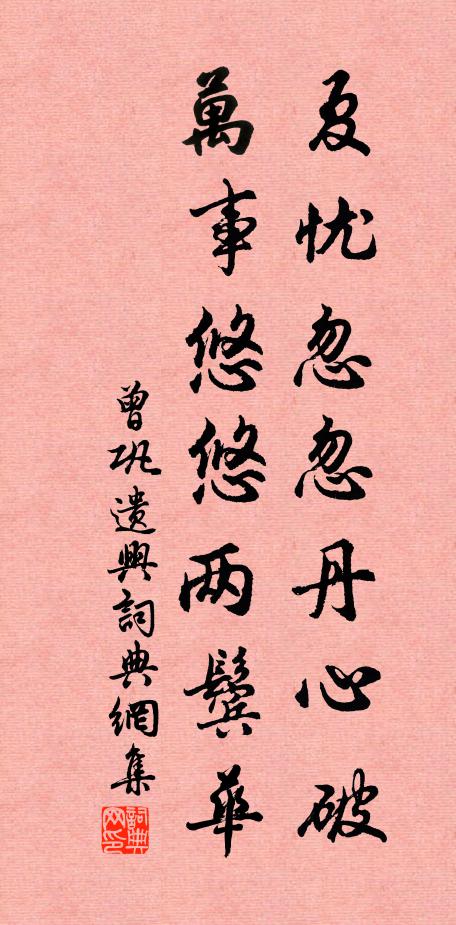 夏忧忽忽丹心破
萬事悠悠两鬓華
曾巩遣興詞典網集
詞典网印